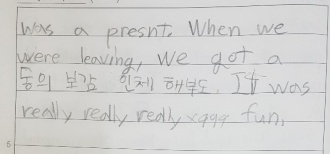 was a presnt. When we
were leaving, we got a
동의 보감 인체 해부도. It was
really really really xqqq fun.